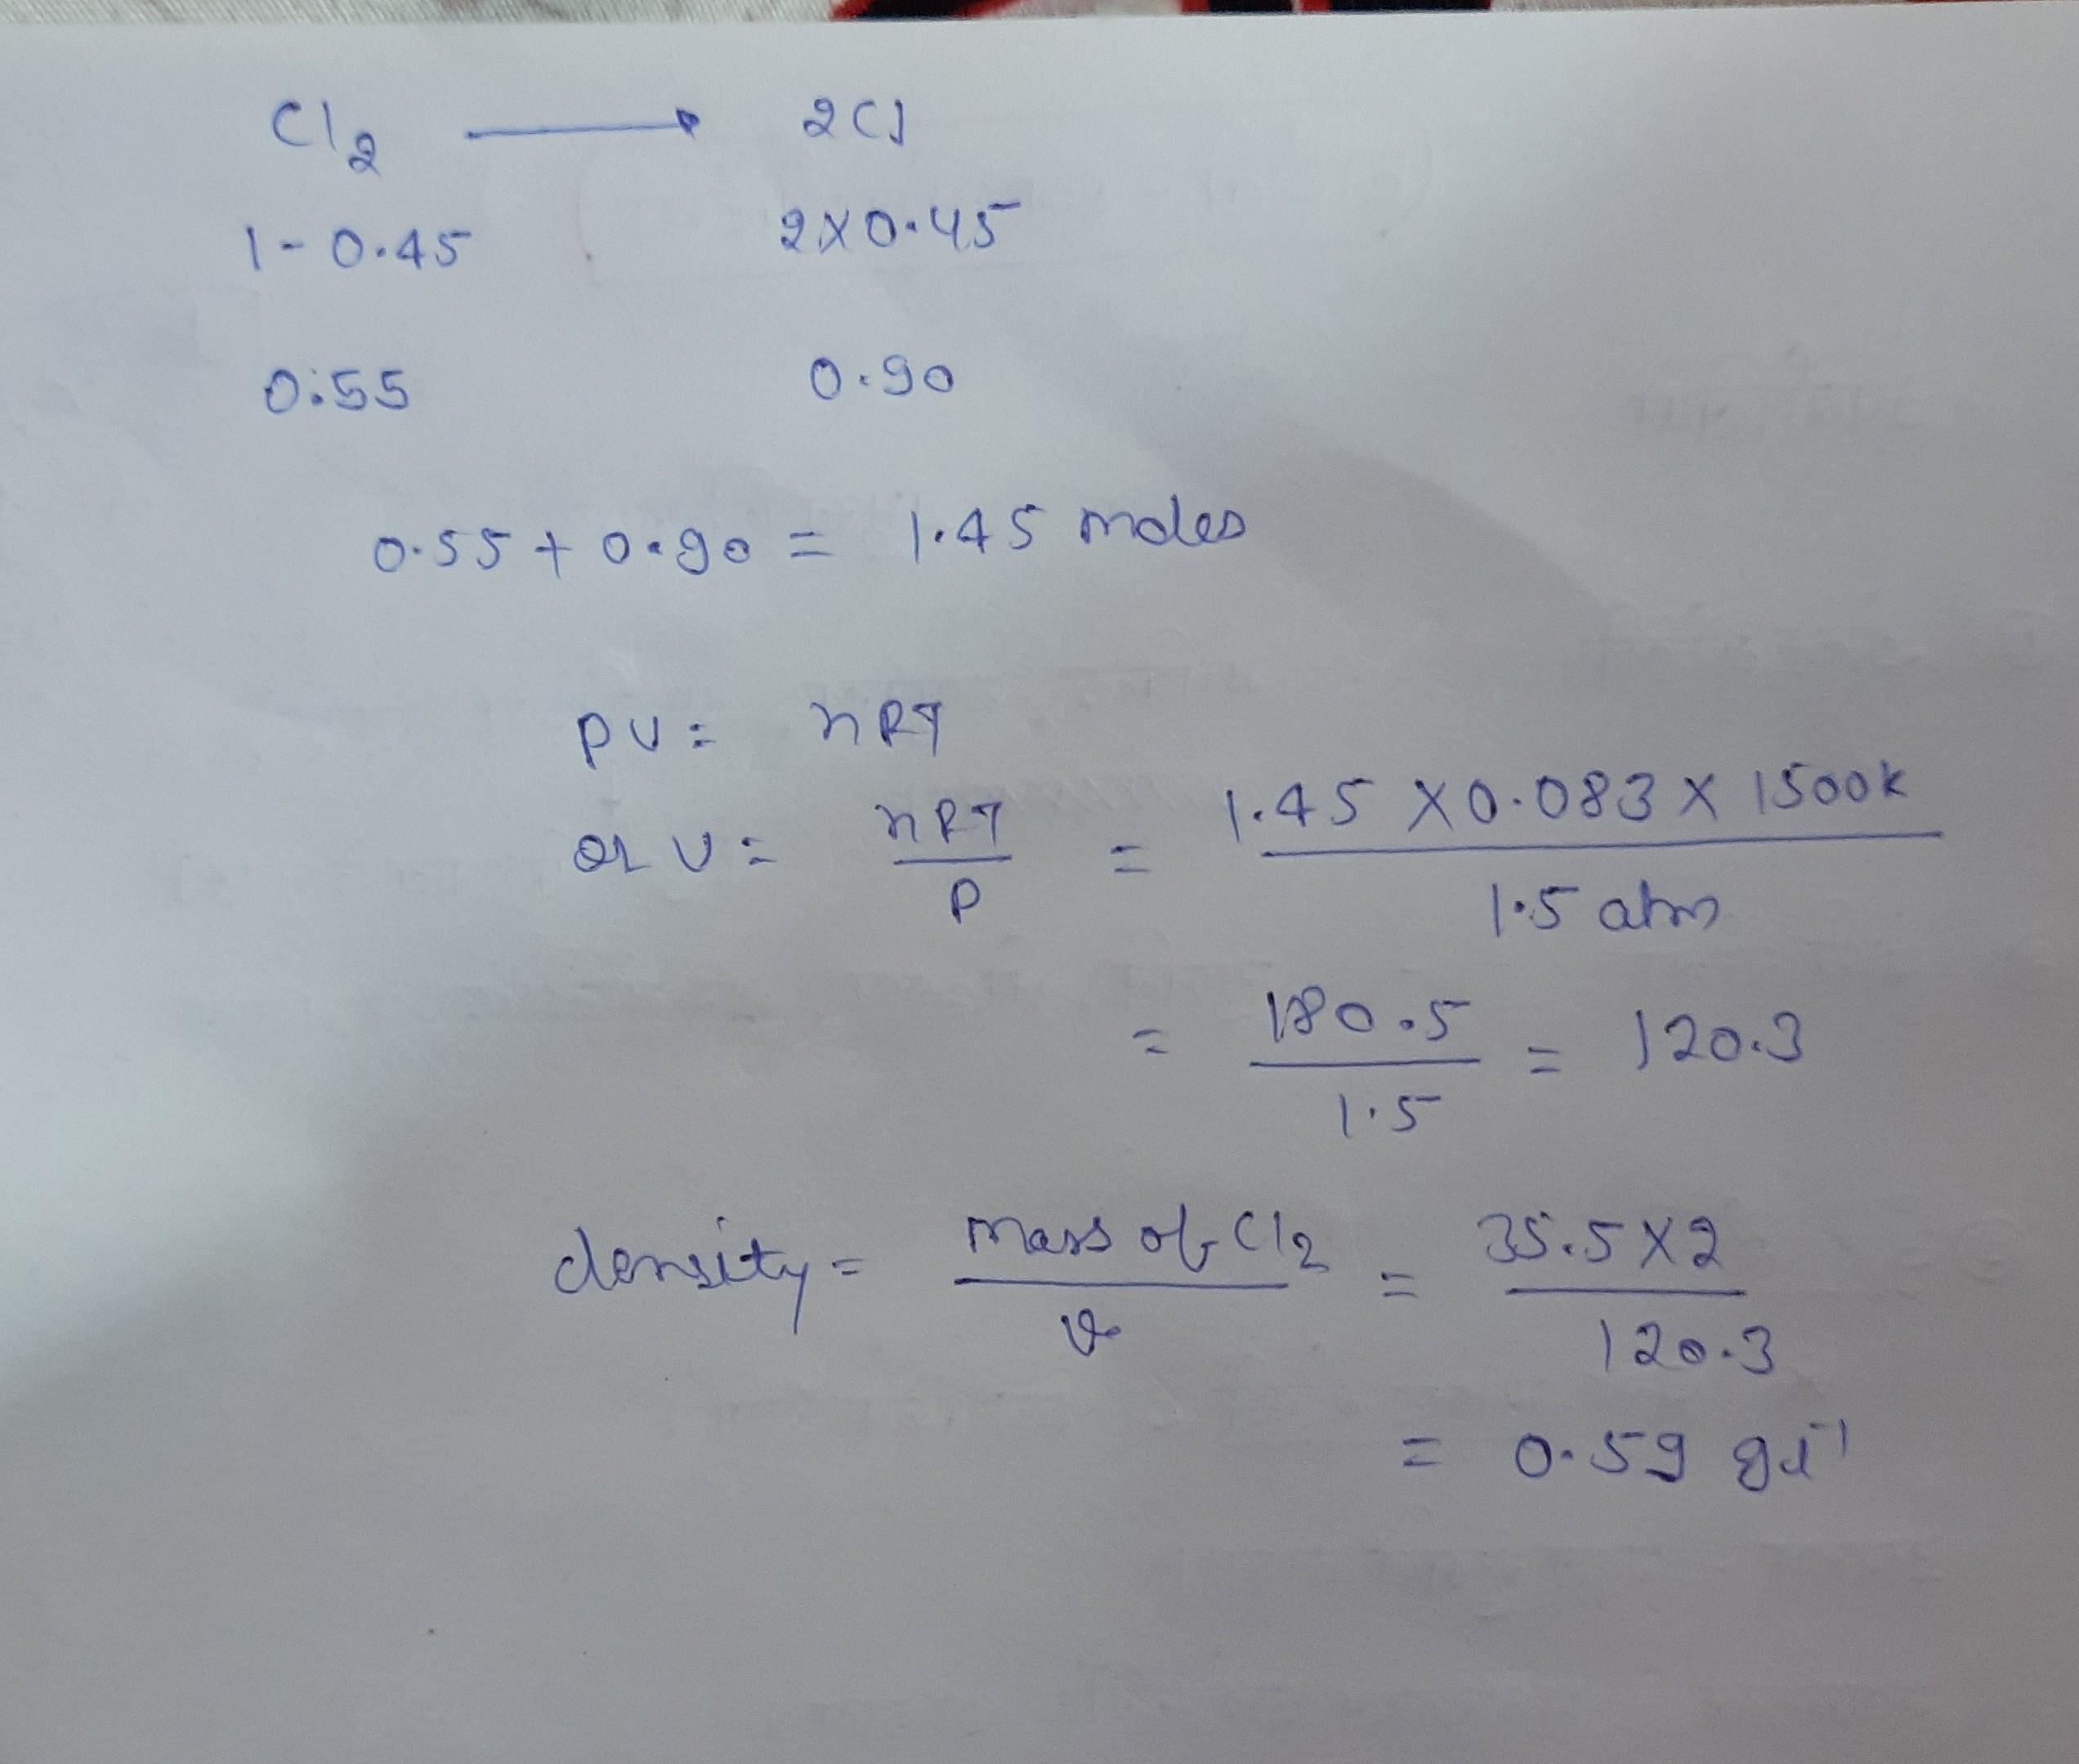 Cl2 → 2Cl
1-0.45 2×0.45
0.55 0.90
0.55 + 0.90 = 1.45 moles
PV = nRT
or V = nRT/P = 1.45 × 0.083 × 1500k / 1.5 atm
= 180.5/1.5 = 120.3
density = mass of Cl2 / v = 35.5×2 / 120.3
= 0.59 gL-1